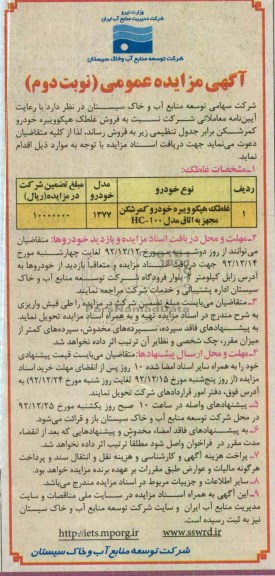 وزارت نیرو
شرکت مدیریت منابع آب ایران
شرکت توسعه منابع آب و خاک سیستان
آگهی مزایده عمومی (نوبت دوم)
شرکت سهامی توسعه منابع آب و خاک سیستان در نظر دارد با رعایت
آیین‌نامه معاملاتی شرکت نسبت به فروش غلطک هپکوویبره خودرو
کمرشکن برابر جدول تنظیمی زیر به فروش رساند، لذا از کلیه متقاضیان
دعوت می‌نماید جهت دریافت اسناد مزایده با توجه به موارد ذیل اقدام
نماید.
۱-مشخصات غلطک:
ردیف نوع خودرو مدل خودرو مبلغ تضمین شرکت در مزایده(ریال)
۱ غلطک هپکو ویبره خودرو کمرشکن مجهز به اتاق مدل HC-۱۰۰ ۱۳۷۷ ۱۰۰۰۰۰۰۰
۲-مهلت و محل دریافت اسناد مزایده و بازدید خودروها: متقاضیان
می‌توانند از روز دوشنبه مورخ ۹۲/۱۲/۱۲ لغایت چهارشنبه مورخ
۹۲/۱۲/۱۴ جهت دریافت اسناد مزایده و متعاقبا بازدید از خودروها به
آدرس زابل کیلومتر ۴ بلوار فرودگاه شرکت توسعه منابع آب و خاک
سیستان اداره پشتیبانی و خدمات شرکت مراجعه نمایند.
۳-متقاضیان می‌بایست مبلغ تضمین شرکت در مزایده را طی فیش واریزی
به شرح مندرج در اسناد مزایده تهیه و به همراه اسناد مزایده تحویل نمایند.
به پیشنهادهای فاقد سپرده، سپرده‌های مخدوش، سپرده‌های کمتر از
میزان مقرر، چک شخصی و نظایر آن ترتیب اثر داده نخواهد شد.
۴-مهلت و محل ارسال پیشنهادها: متقاضیان می‌بایست قیمت پیشنهادی
خود را به همراه سایر اسناد امضا شده ۱۰ روز پس از انقضای مهلت خرید اسناد
مزایده (از روز پنج‌شنبه مورخ ۹۲/۱۲/۱۵ لغایت روز شنبه مورخ ۹۲/۱۲/۲۴) به
آدرس فوق، دفتر امور قراردادهای شرکت تحویل نمایند.
۵- پیشنهادهای واصله در ساعت ۱۰ صبح روز یکشنبه مورخ ۹۲/۱۲/۲۵
در محل شرکت توسعه منابع آب و خاک سیستان باز و قرائت می‌شود.
۶- به پیشنهادهای فاقد امضاء مخدوش و پیشنهادهایی که بعد از انقضاء
مدت مقرر در فراخوان واصل شود مطلقا ترتیب اثر داده نخواهد شد.
۷- پرداخت هزینه آگهی و کارشناسی و هزینه نقل و انتقال سند و پرداخت
هر گونه مالیات و عوارض طبق مقررات بر عهده برنده مزایده خواهد بود.
۸-سایر اطلاعات و جزییات مربوط در اسناد مزایده مندرج می‌باشد.
۹- این آگهی به همراه اسناد مزایده در سایت ملی مناقصات و سایت
مدیریت منابع آب ایران و سایت شرکت توسعه منابع آب و خاک سیستان
نیز به ثبت رسیده است.
http://iets.mporg.ir www.sswrd.ir
شرکت توسعه منابع آب و خاک سیستان